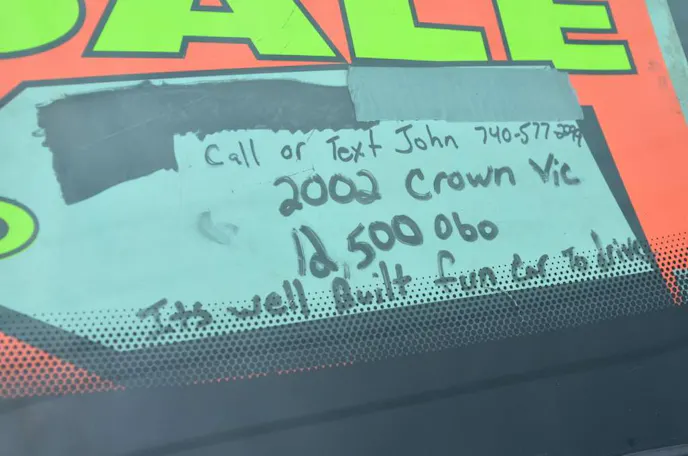 SALE
Call or Text John 740-577-
2002 Crown Vic
12,500 Obo
Its well Built fun Car To drive